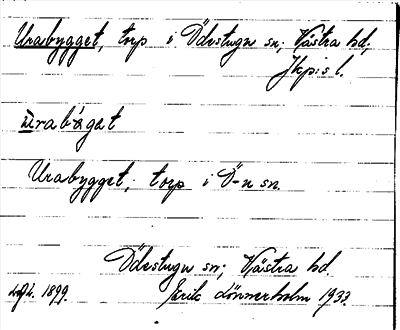 Urabygget, torp i Ödestugu sn; Västra hd;
Jkp:s l.
ùrabỳgat
Urabygget, torp i Ö-u sn.
Ödestugu sn; Västra hd.
1899. Erik Lönnerholm 1933.